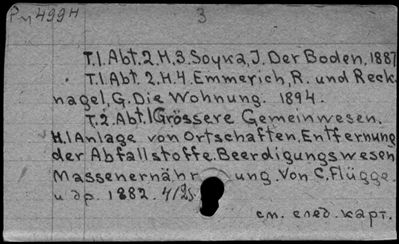 Рм4994 3
T.1.Abt.2.H.3.Soyka,J. Der Boden, 1887
T.1.Abt.2.H.4.Emmerich,R. und Reck-
nagel,G. Die Wohnung. 1894.
T.2.Abt.1 Grössere Gemeinwesen.
H.1 Anlage von Ortschaften. Entfernung
der Abfallstoffe. Beerdigungswesen
Massenernähr ung. Von C. Flügge
и др. 1882. 4/25.
см. след. карт.